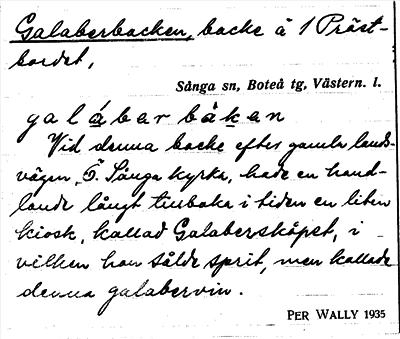 Galaberbacken, backe å 1 Präst-
bordet,
Sånga sn, Boteå tg, Västern. l.
galábarbàkan
Vid denna backe efter gamla lands-
vägen, Ö. Sånga kyrka, hade en hand-
lande långt tillbaka i tiden en liten
kiosk, kallad Galaberskåpet, i
vilken han sålde sprit, men kallade
denna galabervin.
PER WALLY 1935